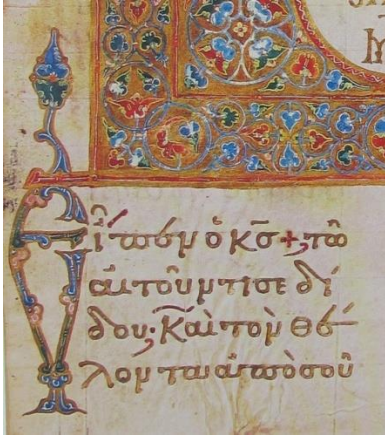 Εἶπεν ὁ κ̅ς̅ +, τῶ
αἰτοῦντι σε δί
δου· Καὶ τὸν θέ
λοντα ἀπὸ σοῦ